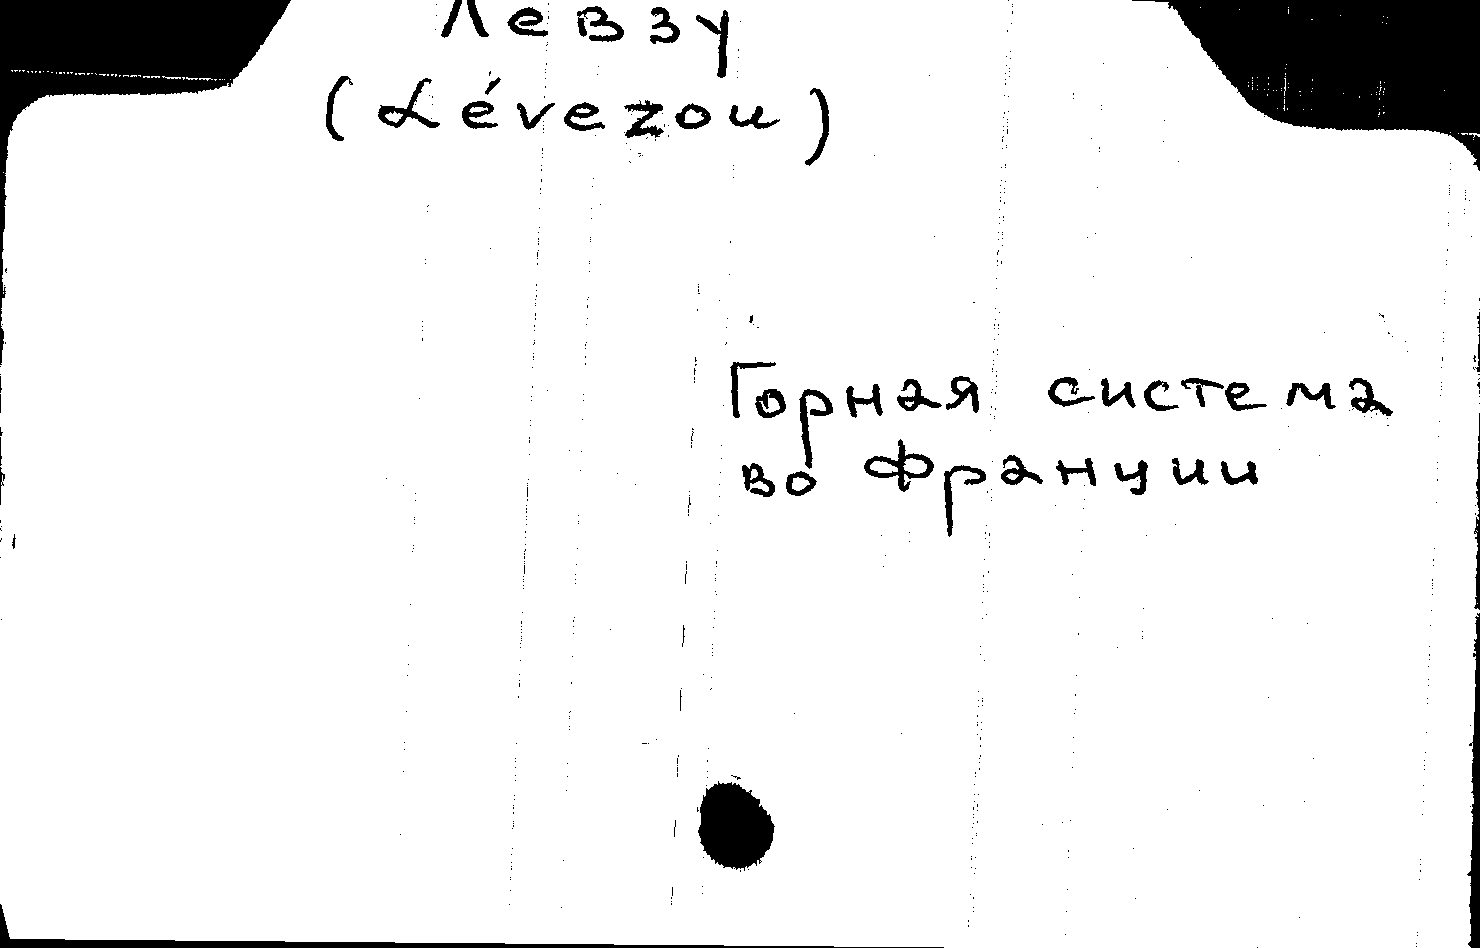 Левзу
(Lévezou)
Горная система
во Франции